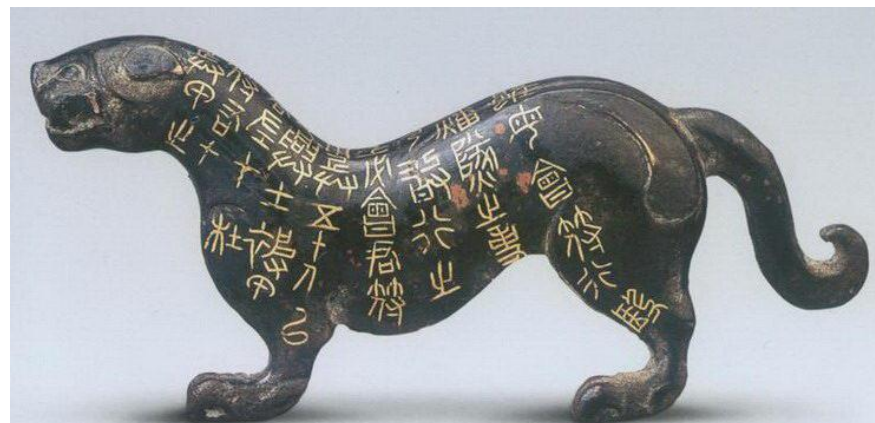 兵甲之
符右才
君左才杜
凡興士被甲
用兵五十人以
上必會君符
乃敢行之
燔燧之事
雖毋會符行殹